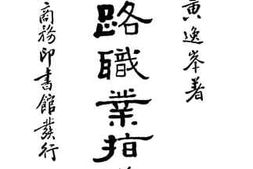 黄逸峯著
路職業指
商務印書館發行